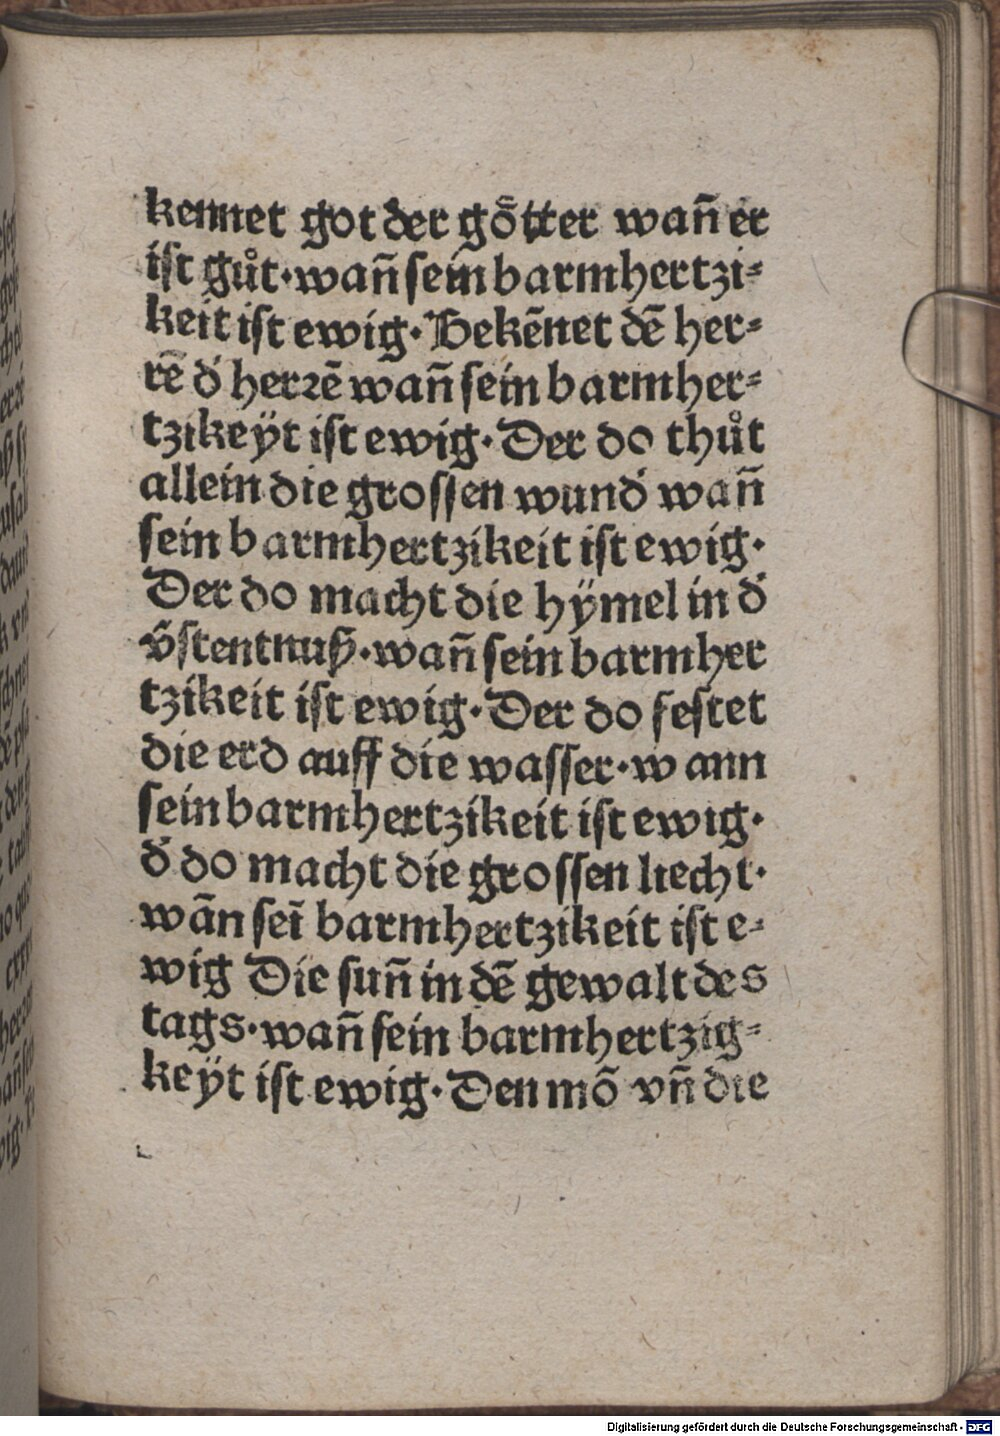 kennet got der goͤtter wan̄ er
iſt gůt·wan̄ ſein barmhertzi⸗
keit iſt ewig·Bekēnet dē her⸗
rē d̓ herꝛē wan̄ ſein barmher⸗
tzikeÿt iſt ewig·Der do thůt
allein die groſſen wund̓ wan̄
ſein barmhertzikeit iſt ewig·
Der do macht die hÿmel in d̓
v̄ſtentnuß·wan̄ ſein barmher
tzikeit iſt ewig·Der do feſtet
die erd auff die waſſer·wann
ſein barmhertzikeit iſt ewig·
d̓ do macht die groſſen liecht·
wān ſeī barmhertzikeit iſt e⸗
wig Die ſun̄ in dē gewalt des
tags·wan̄ ſein barmhertzig⸗
keÿt iſt ewig·Den mō vn̄ die
Digitalisierung gefördert durch die Deutsche Forschungsgemeinschaft - DFG